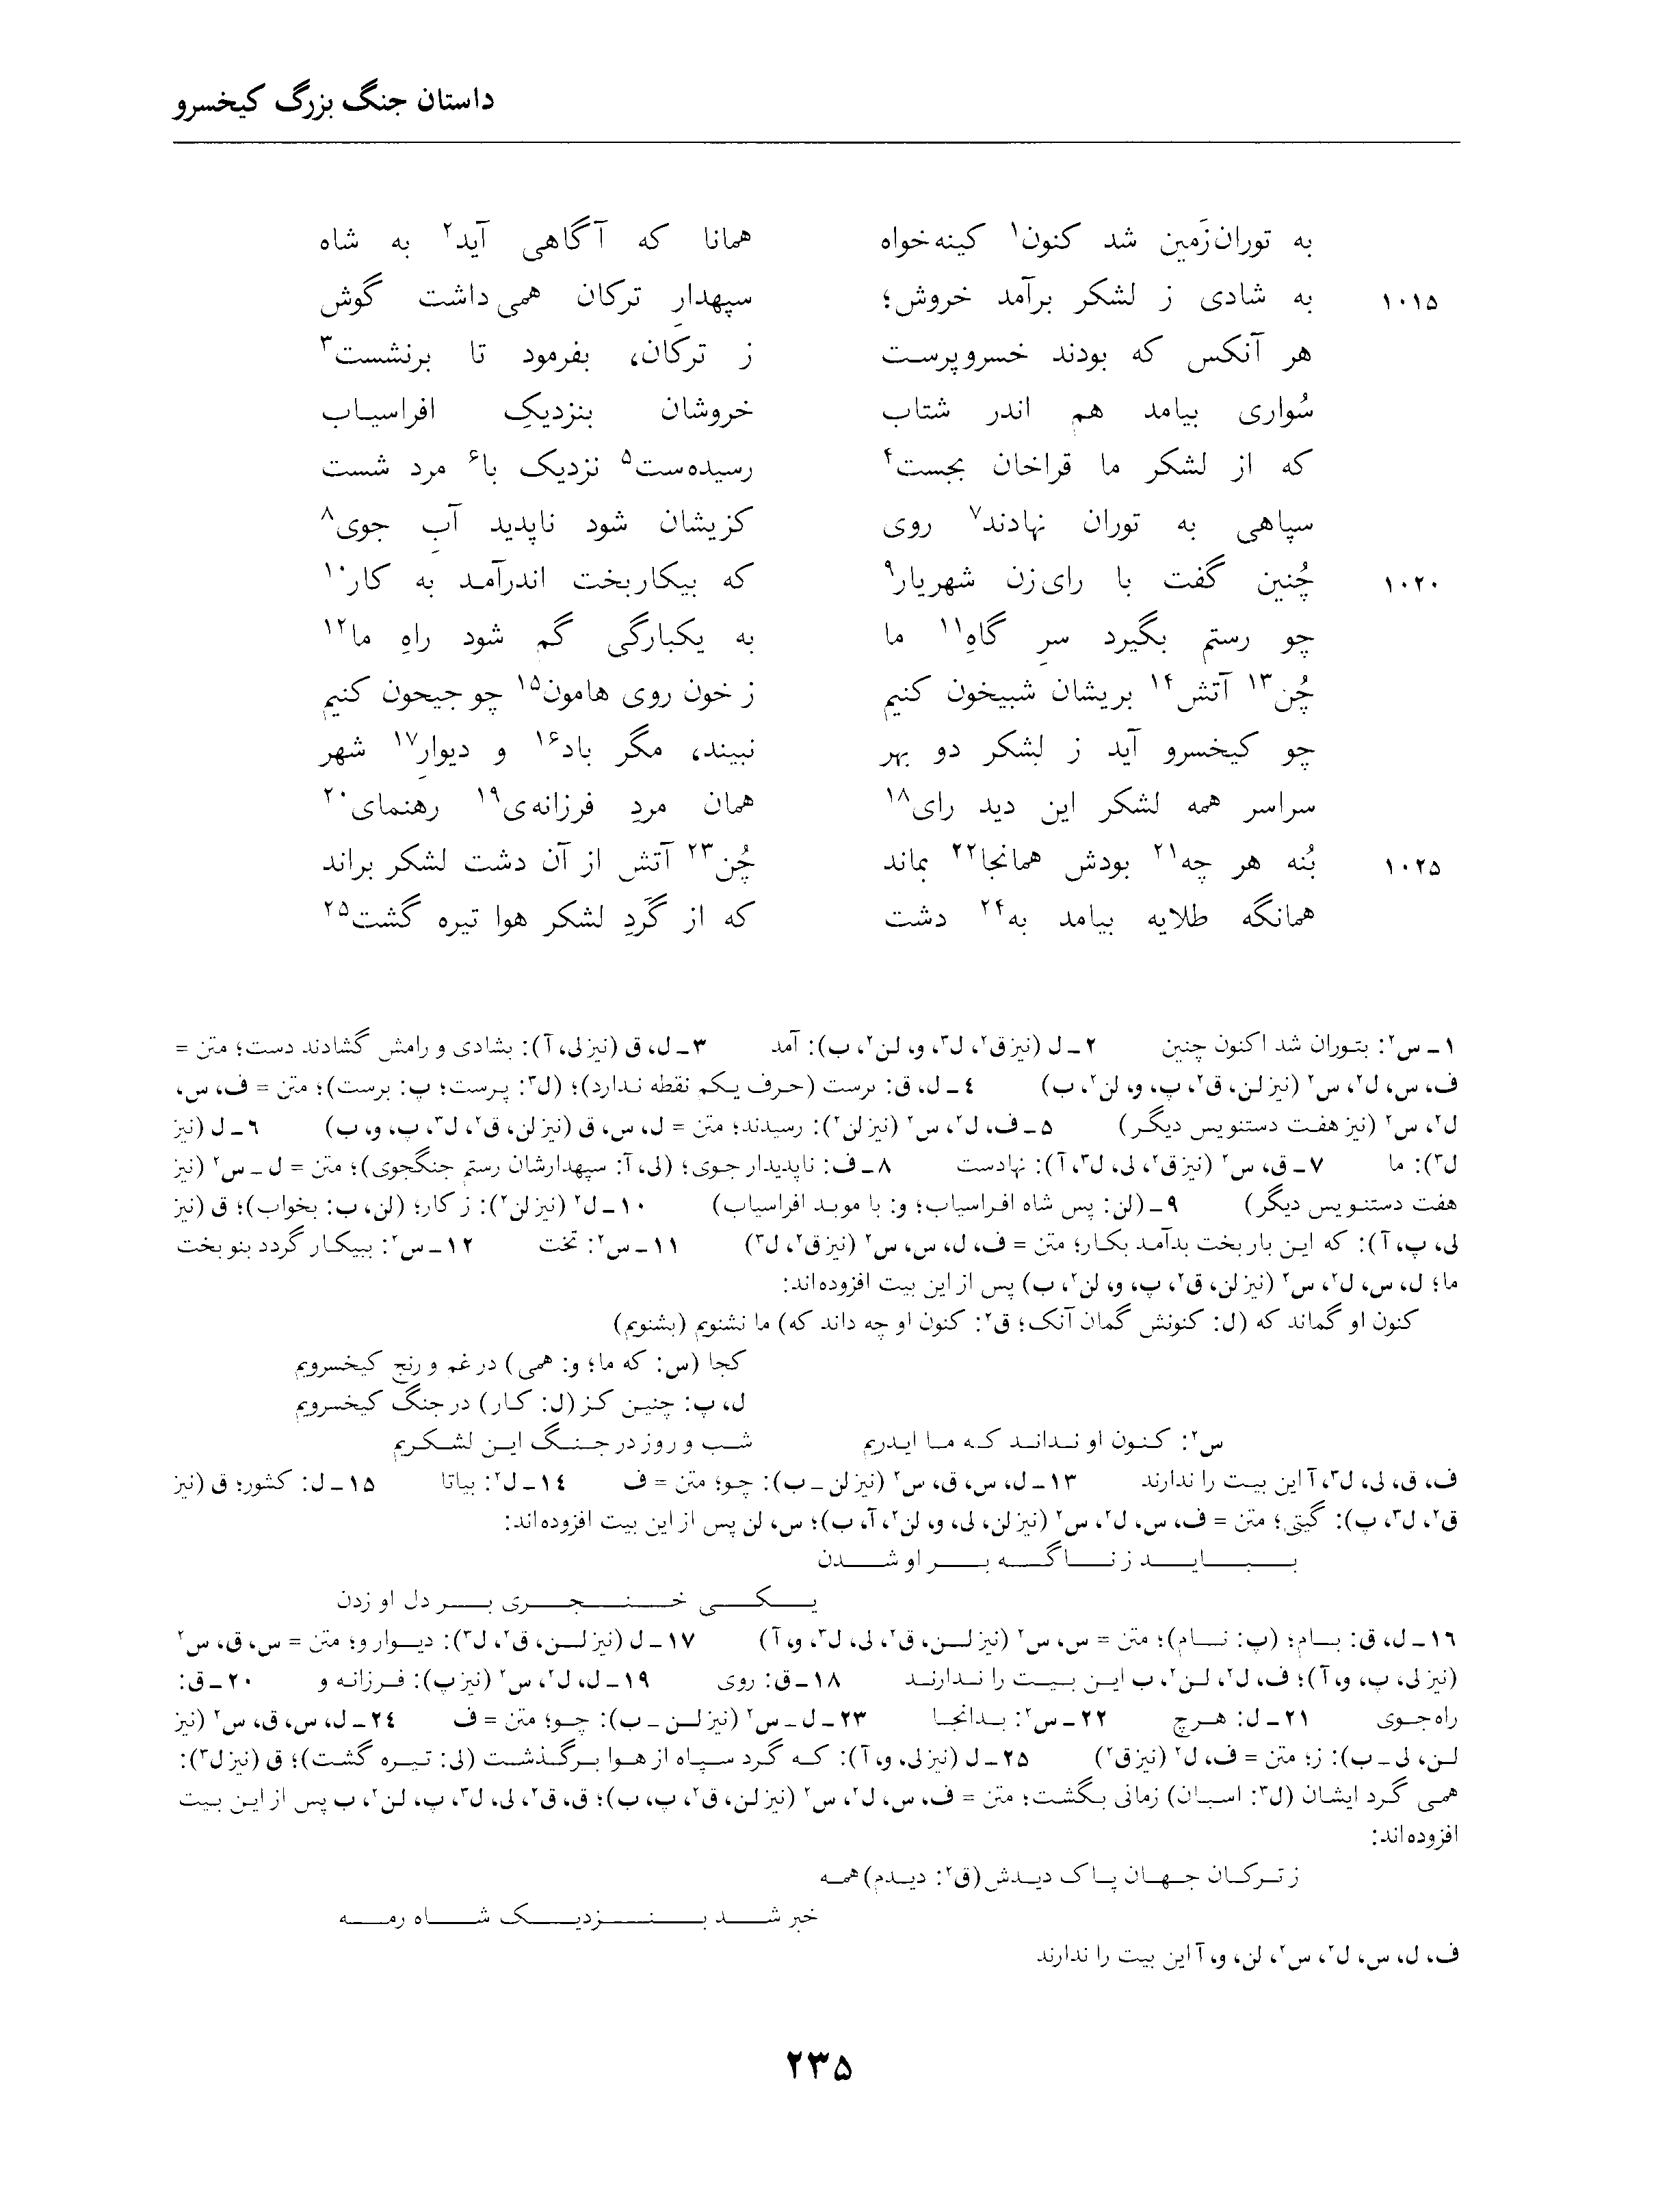 داستان جنگ بزرگ کیخسرو
به توران‌زَمین شد کنون۱ کینه‌خواه همانا که آگاهی آید۲ به شاه
۱۰۱۵ به شادی ز لشکر برآمد خروش؛ سپهدارِ ترکان همی‌داشت گوش
هر آنکس که بودند خسروپرست ز ترکان، بفرمود تا برنشست۳
سُواری بیامد هم اندر شتاب خروشان بنزدیکِ افراسیاب
که از لشکر ما قراخان بجست۴ رسیده‌ست۵ نزدیک با۶ مرد شست
سپاهی به توران نهادند۷ روی کزیشان شود ناپدید آبِ جوی۸
۱۰۲۰ چُنین گفت با رای‌زن شهریار۹ که بیکاربخت اندرآمد به کار۱۰
چو رستم بگیرد سرِ گاهِ۱۱ ما به یکبارگی گم شود راهِ ما۱۲
چُن۱۳ آتش۱۴ بریشان شبیخون کنیم ز خون روی هامون۱۵ چو جیحون کنیم
چو کیخسرو آید ز لشکر دو بهر نبیند، مگر باد۱۶ و دیوارِ۱۷ شهر
سراسر همه لشکر این دید رای۱۸ همان مردِ فرزانه‌ی۱۹ رهنمای۲۰
۱۰۲۵ بُنه هر چه۲۱ بودش همانجا۲۲ بماند چُن۲۳ آتش از آن دشت لشکر براند
همانگه طلایه بیامد به۲۴ دشت که از گَردِ لشکر هوا تیره گشت۲۵
۱ـ س۲: بتوران شد اکنون چنین ۲ـ ل (نیز ق۲، ل۳، و، لن۲، ب): آمد ۳ـ ل، ق (نیز لی، آ): بشادی و رامش گشادند دست؛ متن =
ف، س، ل۲، س۲ (نیز لن، ق۲، پ، و، لن۲، ب) ۴ـ ل، ق: برست (حرف یکم نقطه ندارد)؛ (ل۳: پرست؛ پ: برست)؛ متن = ف، س،
ل۲، س۲ (نیز هفت دستنویس دیگر) ۵ـ ف، ل۲، س۲ (نیز لن۲): رسیدند؛ متن = ل، س، ق (نیز لن، ق۲، ل۳، پ، و، ب) ۶ـ ل (نیز
ل۳): ما ۷ـ ق، س۲ (نیز ق۲، لی، ل۳، آ): نهادست ۸ـ ف: ناپدیدار جوی؛ (لی، آ: سپهدارشان رستم جنگجوی)؛ متن = ل ـ س۲ (نیز
هفت دستنویس دیگر) ۹ـ (لن: پس شاه افراسیاب؛ و: با موبد افراسیاب) ۱۰ـ ل۲ (نیز لن۲): ز کار؛ (لن، ب: بخواب)؛ ق (نیز
لی، پ، آ): که این بار بخت بدآمد بکار؛ متن = ف، ل، س، س۲ (نیز ق۲، ل۳) ۱۱ـ س۲: تخت ۱۲ـ س۲: ببیکار گردد بنو بخت
ما؛ ل، س، ل۲، س۲ (نیز لن، ق۲، پ، و، لن۲، ب) پس از این بیت افزوده‌اند:
کنون او گماند که (ل: کنونش گمان آنک؛ ق۲: کنون او چه داند که) ما نشنویم (بشنویم)
کجا (س: که ما؛ و: همی) در غم و رنج کیخسرویم
ل، پ: چنین کز (ل: کار) در جنگ کیخسرویم
س۲: کنون او نداند که ما ایدریم شب و روز در جنگ این لشکریم
ف، ق، لی، ل۳، آ این بیت را ندارند ۱۳ـ ل، س، ق، س۲ (نیز لن ـ ب): چو؛ متن = ف ۱۴ـ ل۲: بیاتا ۱۵ـ ل: کشور؛ ق (نیز
ق۲، ل۳، پ): گیتی؛ متن = ف، س، ل۲، س۲ (نیز لن، لی، و، لن۲، آ، ب)؛ س، لن پس از این بیت افزوده‌اند:
بباید ز ناگه بر او شدن
یکی خنجری بر دل او زدن
۱۶ـ ل، ق: بام؛ (پ: نام)؛ متن = س، س۲ (نیز لن، ق۲، لی، ل۳، و، آ) ۱۷ـ ل (نیز لن، ق۲، ل۳): دیوار و؛ متن = س، ق، س۲
(نیز لی، پ، و، آ)؛ ف، ل۲، لن۲، ب این بیت را ندارند ۱۸ـ ق: روی ۱۹ـ ل، ل۲، س۲ (نیز پ): فرزانه و ۲۰ـ ق:
راه‌جوی ۲۱ـ ل: هرچ ۲۲ـ س۲: بدانجا ۲۳ـ ل ـ س۲ (نیز لن ـ ب): چو؛ متن = ف ۲۴ـ ل، س، ق، س۲ (نیز
لن، لی ـ ب): ز؛ متن = ف، ل۲ (نیز ق۲) ۲۵ـ ل (نیز لی، و، آ): که گرد سپاه از هوا برگذشت (لی: تیره گشت)؛ ق (نیز ل۳):
همی گرد ایشان (ل۳: اسبان) زمانی بگشت؛ متن = ف، س، ل۲، س۲ (نیز لن، ق۲، پ، ب)؛ ق، ق۲، لی، ل۳، پ، لن۲، ب پس از این بیت
افزوده‌اند:
ز ترکان جهان پاک دیدش (ق۲: دیدم) همه
خبر شد بنزدیک شاه رمه
ف، ل، س، ل۲، س۲، لن، و، آ این بیت را ندارند
۲۳۵